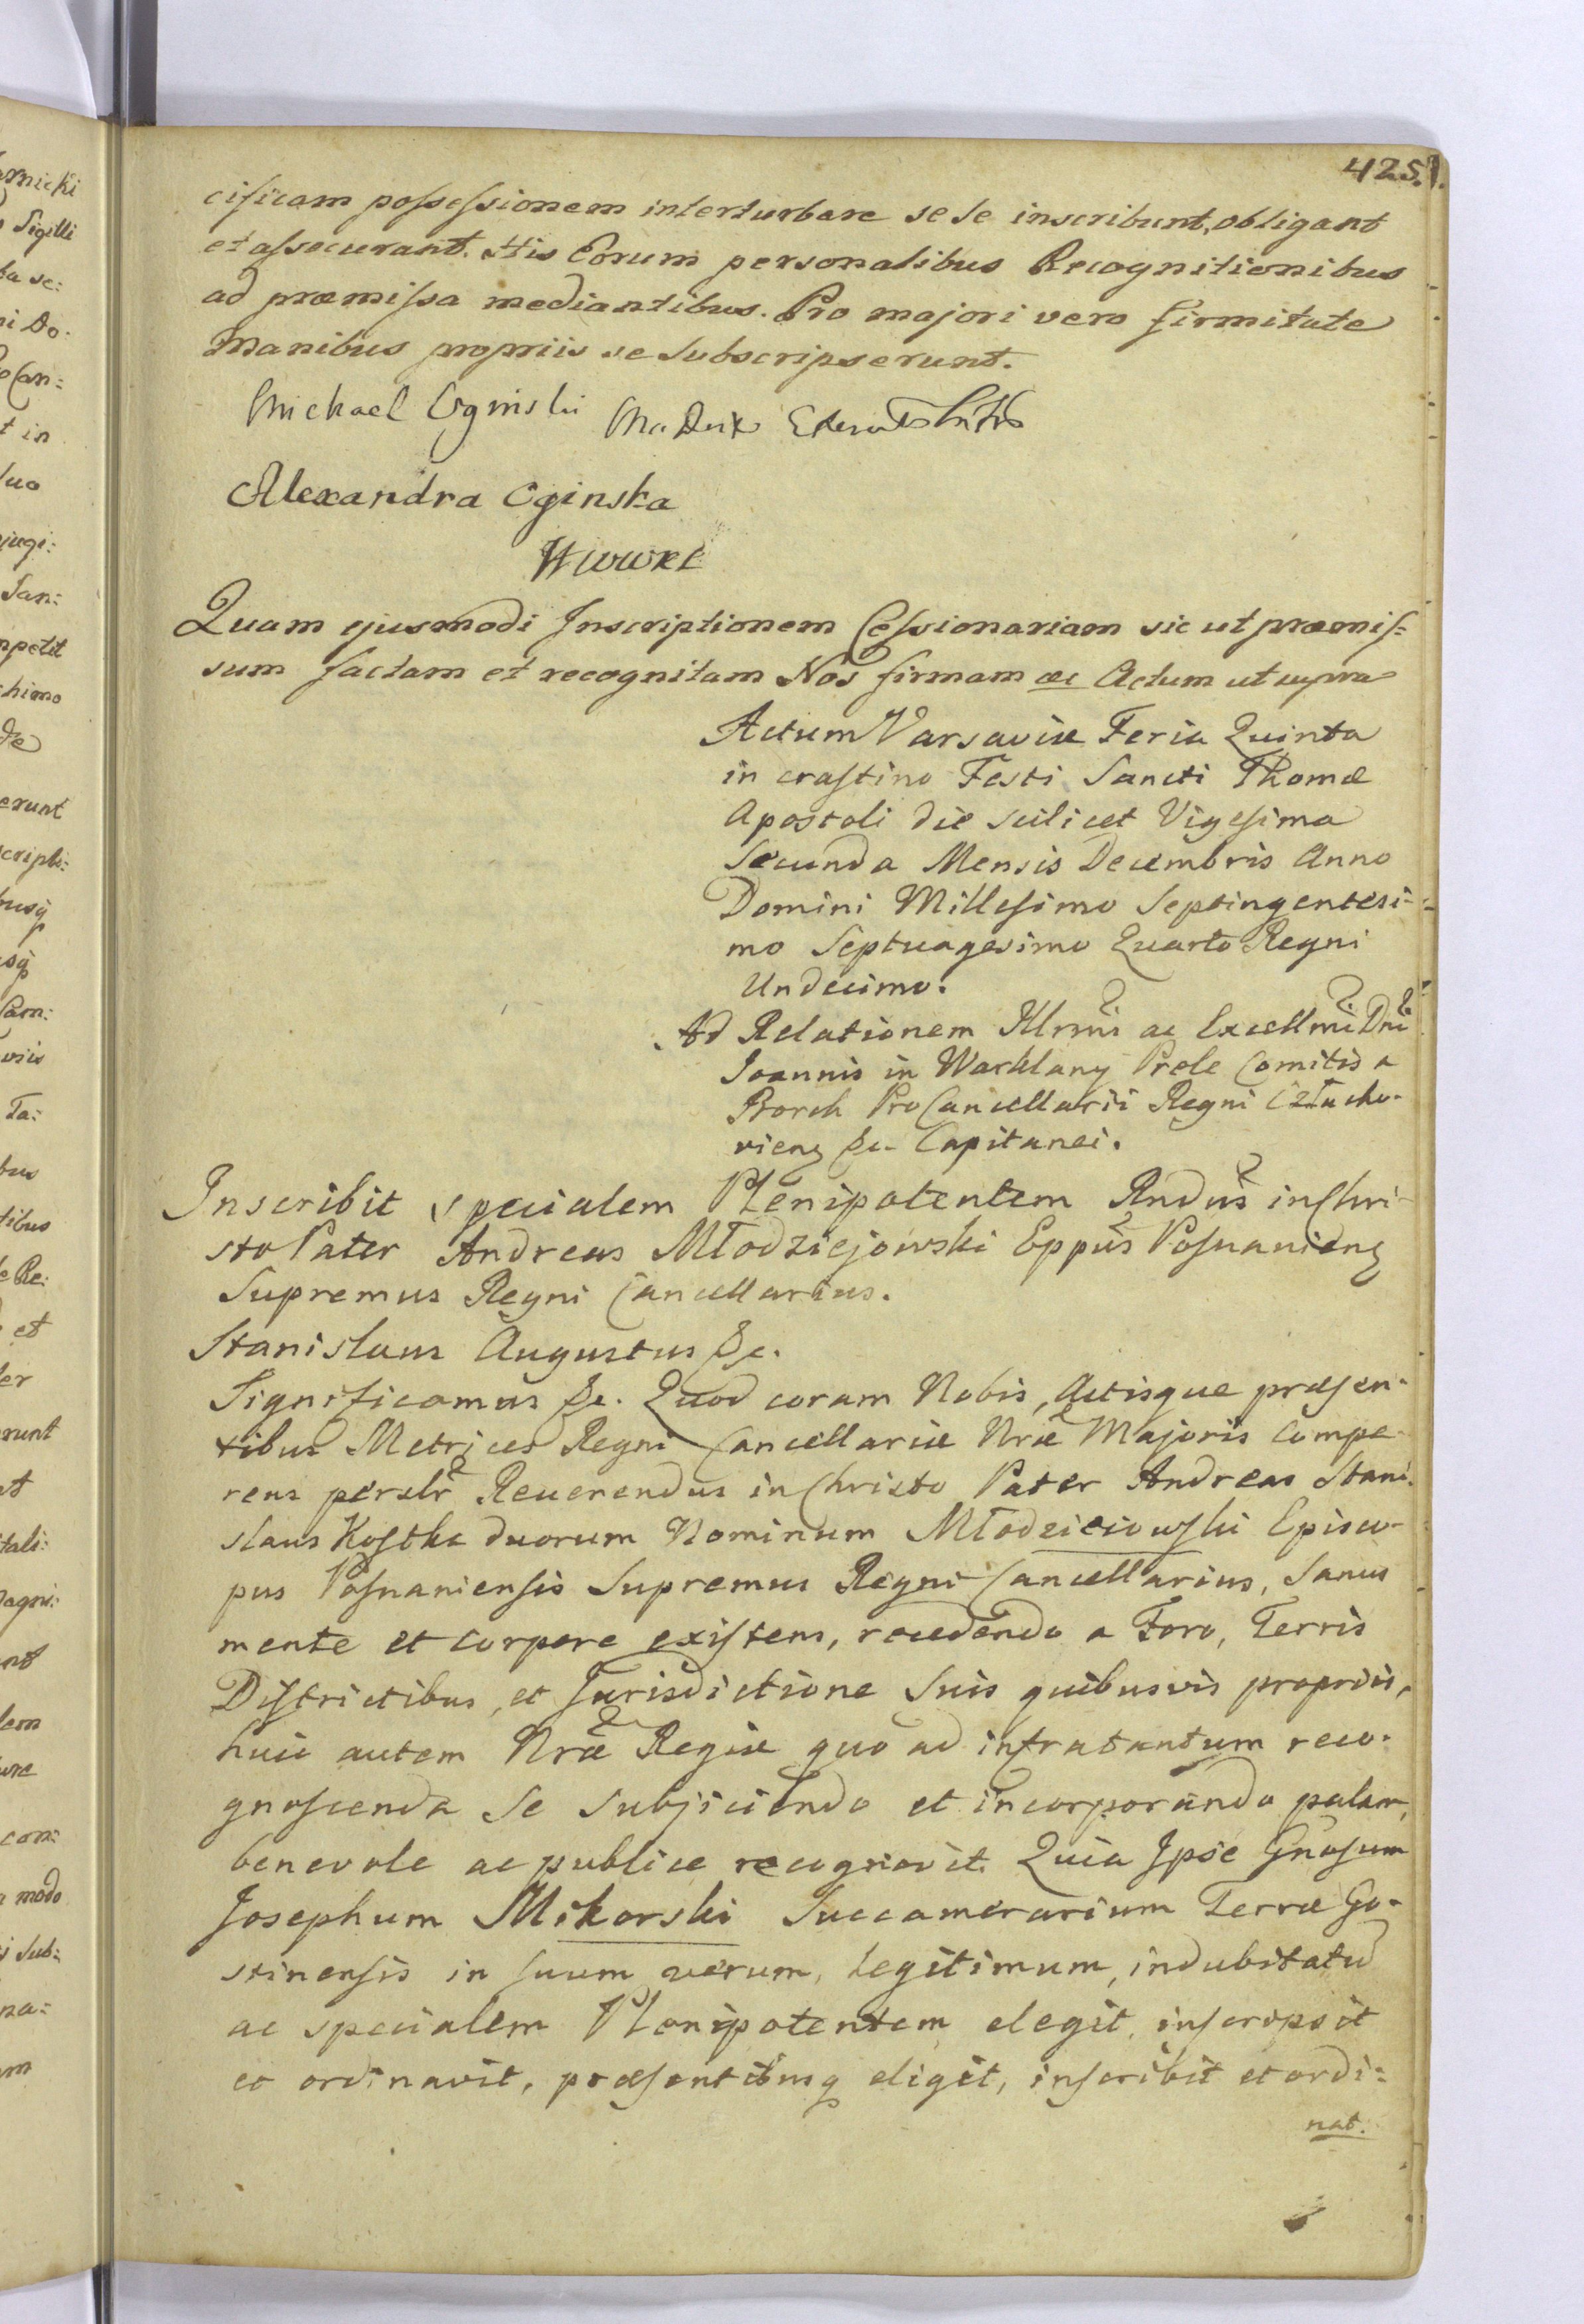 425.
cificam possessionem interturbare sese inscribunt, obligant
et assecurant. His Eorum personalibus Recognitionibus
ad præmissa mediantibus. Pro majori vero firmitate
Manibus propriis se subscripserunt.
Michael Oginski
Alexandra Oginska
Quam ejusmodi Inscriptionem Cessionariam sic ut præmis=
sum factam et recognitam Nos firmam &c Actum ut supra
Actum Varsaviæ Feria Quinta
in crastino Festi Sancti Thomæ
Apostoli die scilicet Vigesima
Secunda Mensis Decembris Anno
Domini Millesimo Septingentesi-
mo Septuagesimo Quarto Regni
Undecimo.
Ad Relationem Illrmi ac Excellmi Dni
Joannis in Warklany Prele Comitis a
Borch ProCancellarii Regni
&c. Capitanei.
Inscribit specialem Plenipotentem Rndus in Chri-
sto Pater Andreas Młodziejowski Eppus Posnanien
Supremus Regni Cancellarius.
Stanislaus Augustus &c.
Significamus &c. Quod coram Nobis, Actisque præsen-
tibus Metrices Regni Cancellariæ Nræ Majoris Compa-
rens perslr Reverendus in Christo Pater Andreas Stani-
slaus Kostka duorum Nominum Młodzieiowski Episco-
pus Posnaniensis Supremus Regni Cancellarius, Sanus
mente et corpore existens, recedendo a Foro, Terris
Districtibus, et Jurisdictione Suis quibusvis propriis,
huic autem Nræ Regiæ quo ad infratantum reco-
gnoscenda Se Subjiciendo et incorporando palam,
benevole ac publice recognovit. Quia Ipse Gnosum
Josephum Mikorski Succamerarium Terræ Go-
stinensis in suum verum, legitimum, indubitatū
ac specialem Plenipotentem elegit, inscripsit
et ordinavit, præsentibusq eligit, inscribit et ordi=
nat.